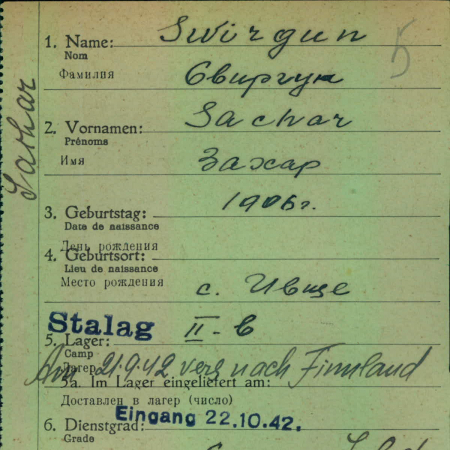 1. Name: Swirgun
Nom
Фамилия Свиргун
5
Sachar
2. Vornamen: Sachar
Prénoms
Имя Захар
3. Geburtstag: 1906г.
Date de naissance
День рождения
4. Geburtsort:
Lieu de naissance
Место рождения с. Ивще
Stalag II-B
5. Lager:
Camp
Лагерь
Am 21.9.42 vers nach Finnland
5a. Im Lager eingeliefert am:
Доставлен в лагерь (число)
Eingang 22.10.42.
6. Dienstgrad:
Grade